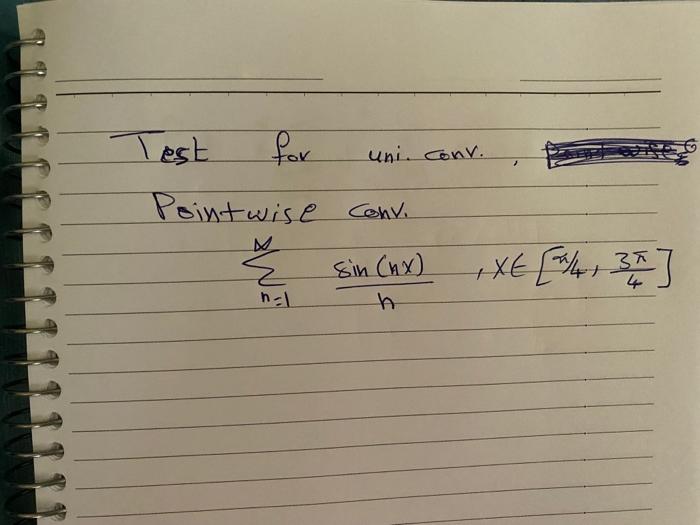 Test for uni. conv. ,
Pointwise conv.
N ∑ n=1 sin(nx)/n , x∈ [π/4, 3π/4]